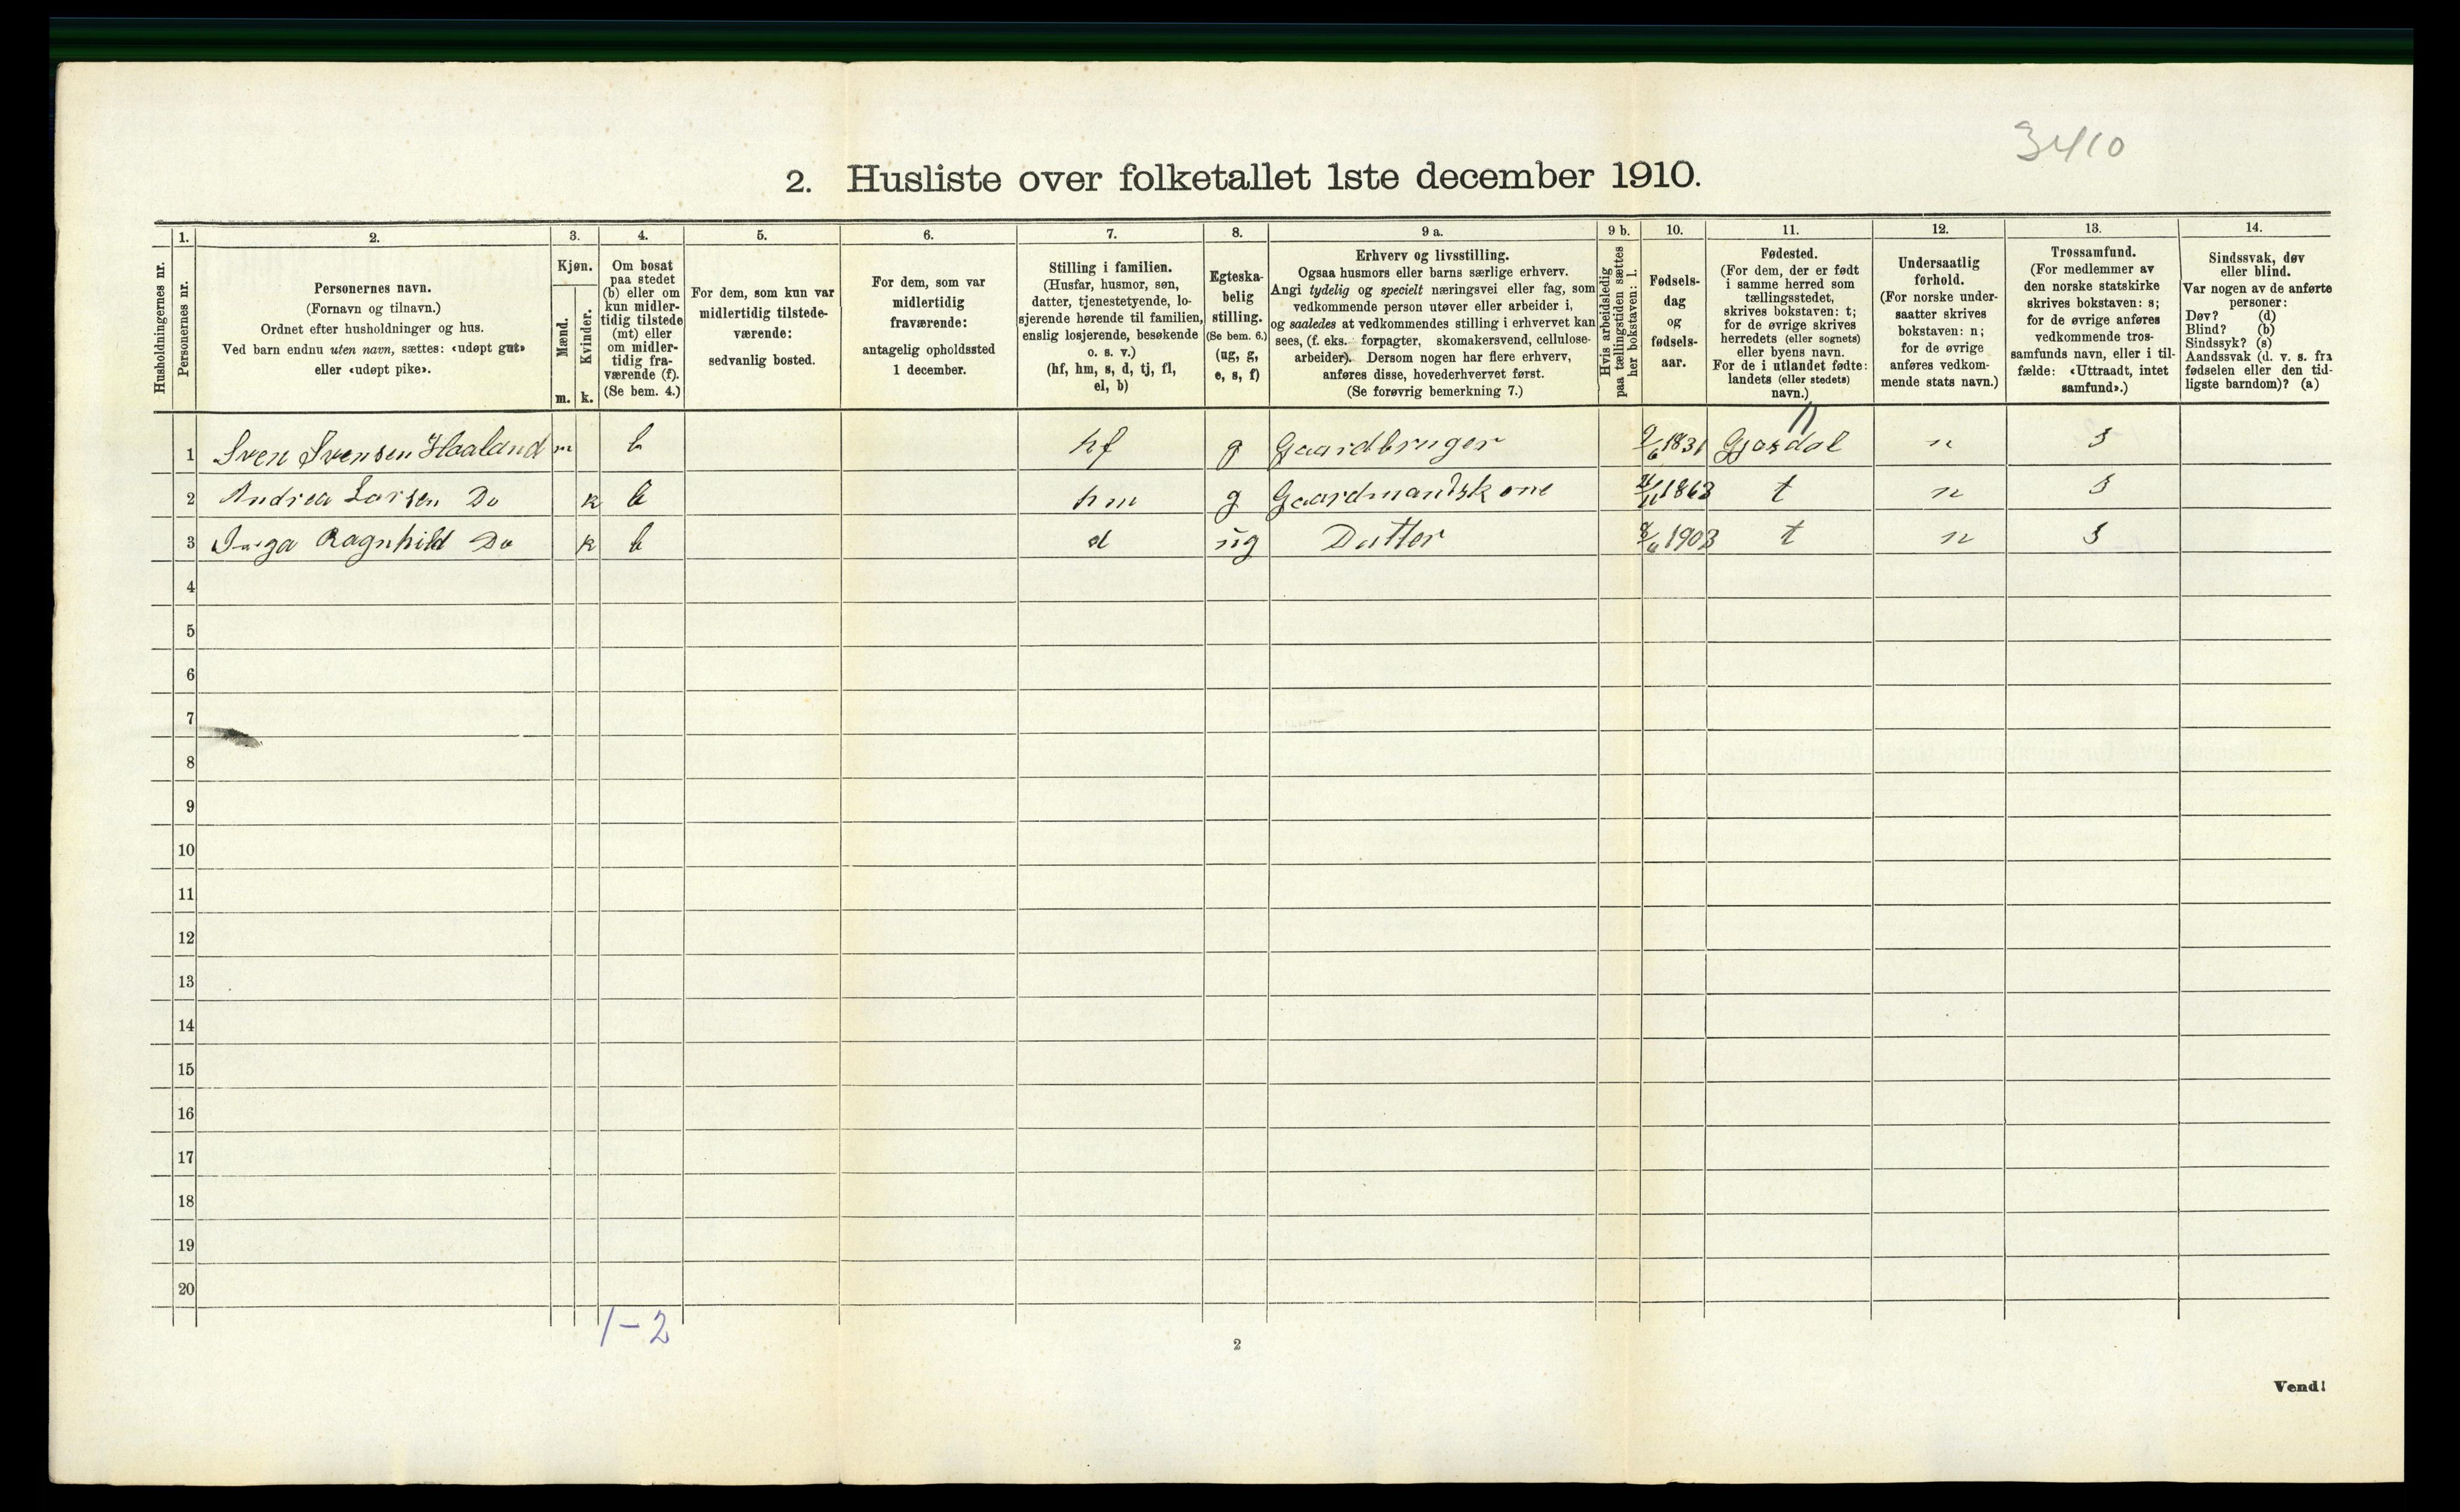 3410
2. Husliste over folketallet 1ste december 1910.
Husholdningernes nr.
1.
Personernes nr.
2.
Personernes navn.
(Fornavn og tilnavn.)
Ordnet efter husholdninger og hus.
Ved barn endnu uten navn, sættes: «udøpt gut»
eller «udøpt pike».
3.
Kjøn.
Mænd.
Kvinder.
m.
k.
4.
Om bosat
paa stedet
(b) eller om
kun midler-
tidig tilstede
(mt) eller
om midler-
tidig fra-
værende (f).
(Se bem. 4.)
5.
For dem, som kun var
midlertidig tilstede-
værende:
sedvanlig bosted.
6.
For dem, som var
midlertidig
fraværende:
antagelig opholdssted
1 december.
7.
Stilling i familien.
(Husfar, husmor, søn,
datter, tjenestetyende, lo-
sjerende hørende til familien,
enslig losjerende, besøkende
o. s. v.)
(hf, hm, s, d, tj, fl,
el, b)
8.
Egteska-
belig
stilling.
(Se bem. 6.)
(ug, g,
e, s, f)
9 a.
Erhverv og livsstilling.
Ogsaa husmors eller barns særlige erhverv.
Angi tydelig og specielt næringsvei eller fag, som
vedkommende person utøver eller arbeider i,
og saaledes at vedkommendes stilling i erhvervet kan
sees, (f. eks. forpagter, skomakersvend, cellulose-
arbeider). Dersom nogen har flere erhverv,
anføres disse, hovederhvervet først.
(Se forøvrig bemerkning 7.)
9 b.
Hvis arbeidsledig
paa tællingstiden sættes
her bokstaven: l.
10.
Fødsels-
dag
og
fødsels-
aar.
11.
Fødested.
(For dem, der er født
i samme herred som
tællingsstedet,
skrives bokstaven: t;
for de øvrige skrives
herredets (eller sognets)
eller byens navn.
For de i utlandet fødte:
landets (eller stedets)
navn.)
12.
Undersaatlig
forhold.
(For norske under-
saatter skrives
bokstaven: n;
for de øvrige
anføres vedkom-
mende stats navn.)
13.
Trossamfund.
(For medlemmer av
den norske statskirke
skrives bokstaven: s;
for de øvrige anføres
vedkommende tros-
samfunds navn, eller i til-
fælde: «Uttraadt, intet
samfund».)
14.
Sindssvak, døv
eller blind.
Var nogen av de anførte
personer:
Døv? (d)
Blind? (b)
Sindssyk? (s)
Aandssvak (d. v. s. fra
fødselen eller den tid-
ligste barndom)? (a)
1 Sven Svensen Haaland m b hf g Gaardbruger 9/6 1831 Gjæsdal n s
2 Andrea Larsen Do k b hm g Gaardmandskone 1863 t n s
3 Inga Ragnhild Do k b d ug Datter 1903 t n s
4
5
6
7
8
9
10
11
12
13
14
15
16
17
18
19
20
1-2
2
Vend!